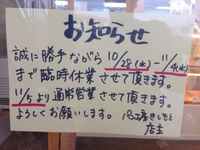 お知らせ
誠に勝手ながら 10/28(火)-11/4(火)
まで臨時休業させて頂きます。
11/5より通常営業させて頂きます。
よろしくお願いします。
店主